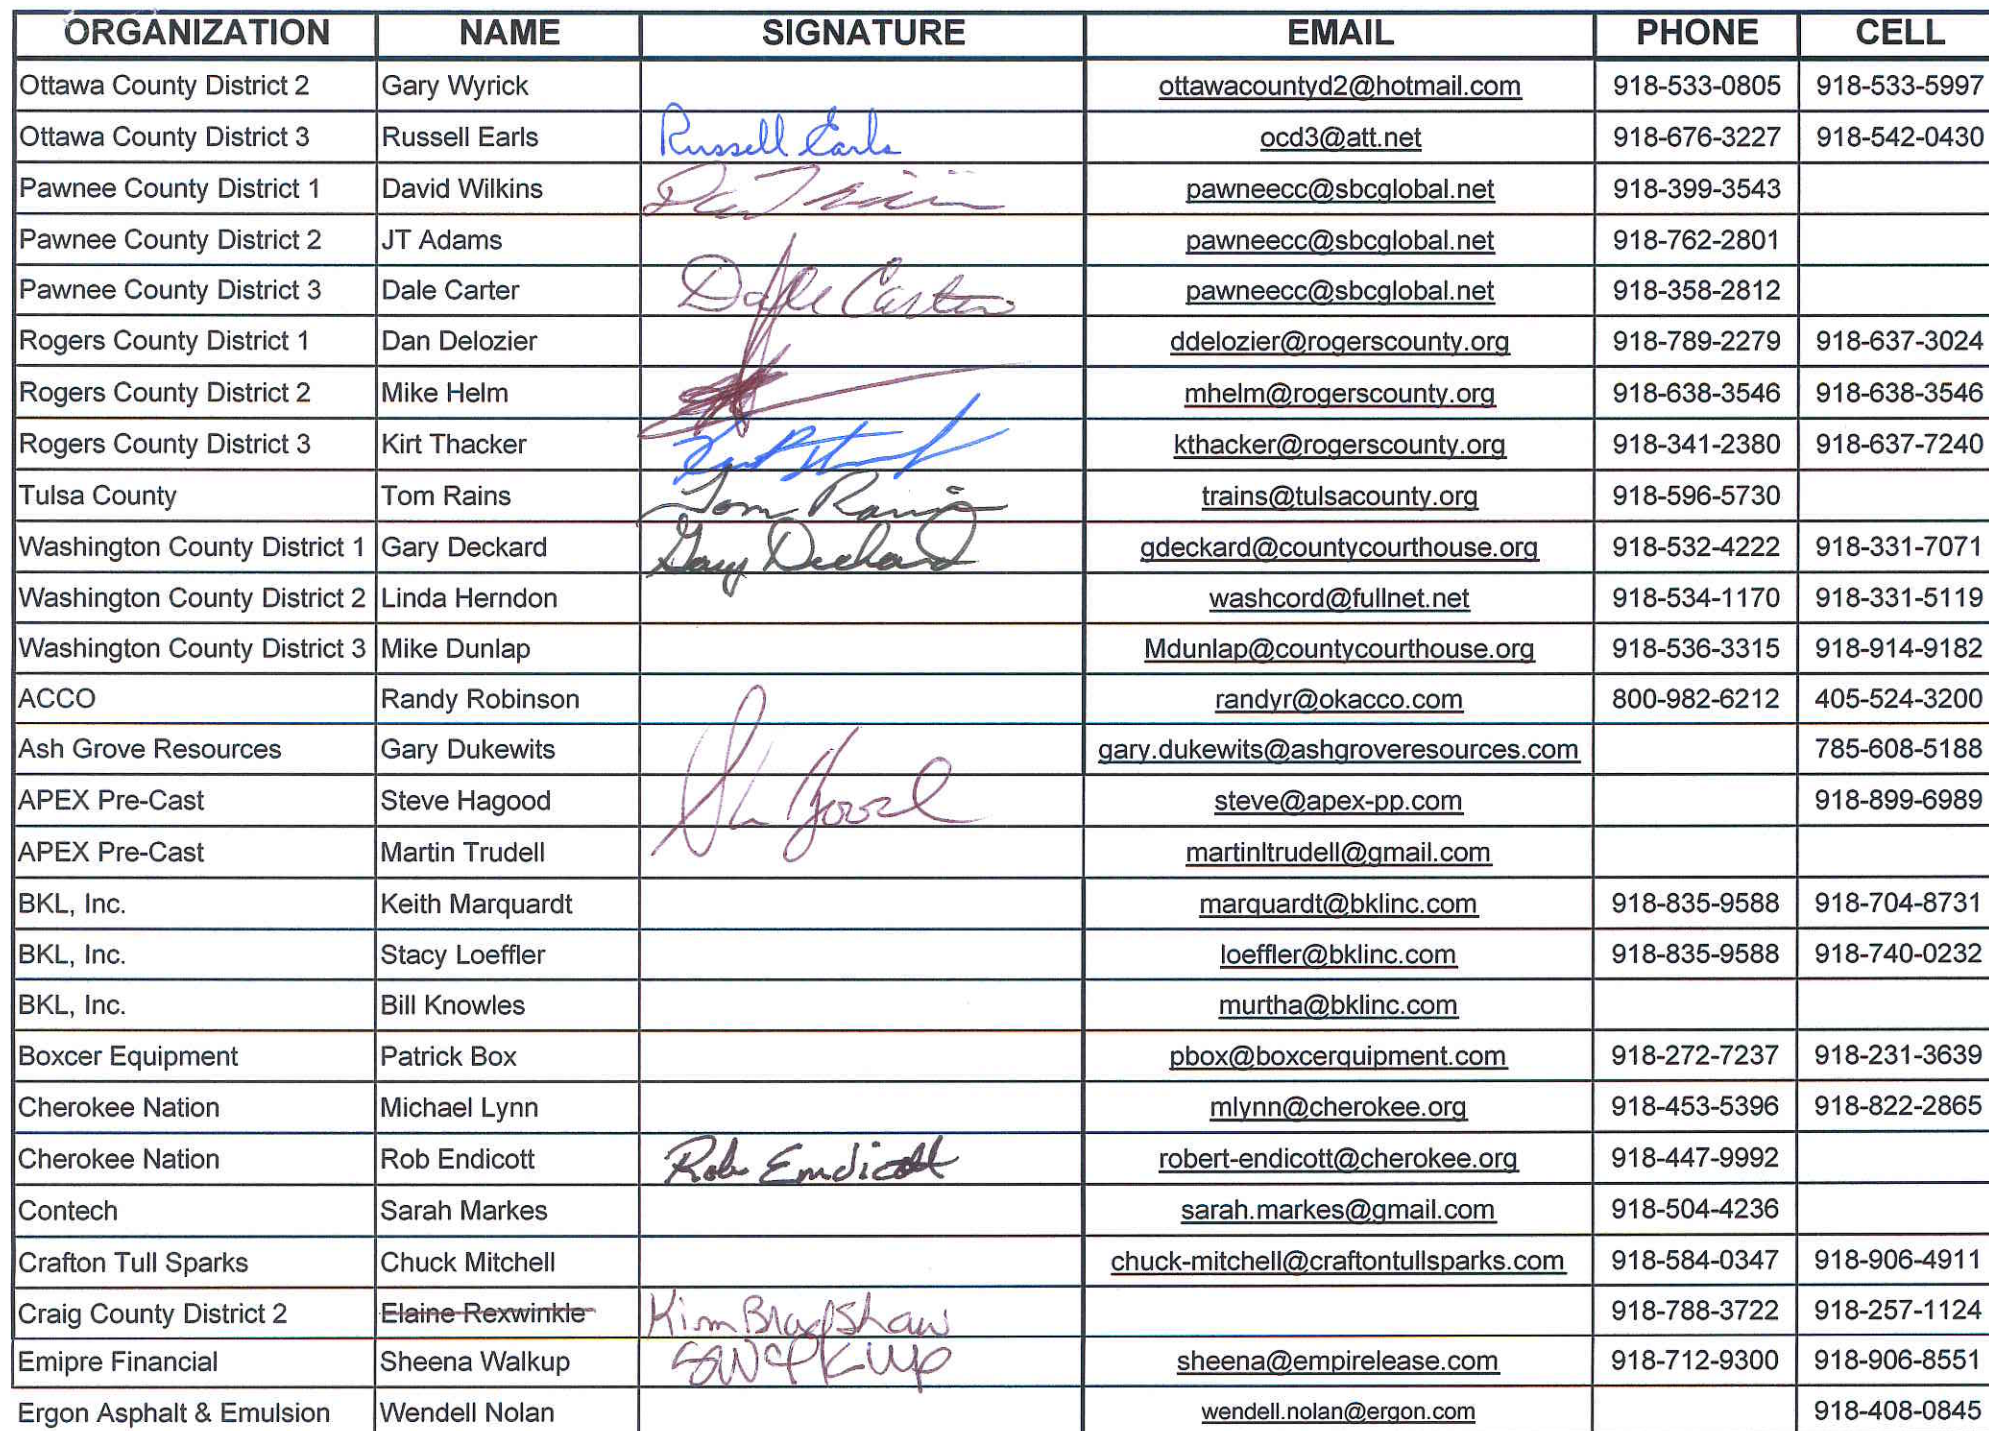 ORGANIZATION NAME SIGNATURE EMAIL PHONE CELL
Ottawa County District 2 Gary Wyrick ottawacountyd2@hotmail.com 918-533-0805 918-533-5997
Ottawa County District 3 Russell Earls Russell Earls ocd3@att.net 918-676-3227 918-542-0430
Pawnee County District 1 David Wilkins pawneecc@sbcglobal.net 918-399-3543
Pawnee County District 2 JT Adams pawneecc@sbcglobal.net 918-762-2801
Pawnee County District 3 Dale Carter Dale Carter pawneecc@sbcglobal.net 918-358-2812
Rogers County District 1 Dan Delozier ddelozier@rogerscounty.org 918-789-2279 918-637-3024
Rogers County District 2 Mike Helm mhelm@rogerscounty.org 918-638-3546 918-638-3546
Rogers County District 3 Kirt Thacker kthacker@rogerscounty.org 918-341-2380 918-637-7240
Tulsa County Tom Rains Tom Rains trains@tulsacounty.org 918-596-5730
Washington County District 1 Gary Deckard Gary Deckard gdeckard@countycourthouse.org 918-532-4222 918-331-7071
Washington County District 2 Linda Herndon washcord@fullnet.net 918-534-1170 918-331-5119
Washington County District 3 Mike Dunlap Mdunlap@countycourthouse.org 918-536-3315 918-914-9182
ACCO Randy Robinson randyr@okacco.com 800-982-6212 405-524-3200
Ash Grove Resources Gary Dukewits gary.dukewits@ashgroveresources.com 785-608-5188
APEX Pre-Cast Steve Hagood steve@apex-pp.com 918-899-6989
APEX Pre-Cast Martin Trudell martinltrudell@gmail.com
BKL, Inc. Keith Marquardt marquardt@bklinc.com 918-835-9588 918-704-8731
BKL, Inc. Stacy Loeffler loeffler@bklinc.com 918-835-9588 918-740-0232
BKL, Inc. Bill Knowles murtha@bklinc.com
Boxcer Equipment Patrick Box pbox@boxcerquipment.com 918-272-7237 918-231-3639
Cherokee Nation Michael Lynn mlynn@cherokee.org 918-453-5396 918-822-2865
Cherokee Nation Rob Endicott Rob Endicott robert-endicott@cherokee.org 918-447-9992
Contech Sarah Markes sarah.markes@gmail.com 918-504-4236
Crafton Tull Sparks Chuck Mitchell chuck-mitchell@craftontullsparks.com 918-584-0347 918-906-4911
Craig County District 2 Elaine Rexwinkle Kim Bradshaw 918-788-3722 918-257-1124
Emipre Financial Sheena Walkup SWalkup sheena@empirelease.com 918-712-9300 918-906-8551
Ergon Asphalt & Emulsion Wendell Nolan wendell.nolan@ergon.com 918-408-0845